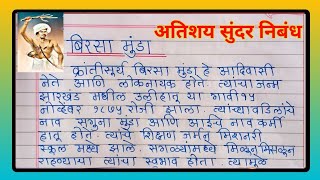 अतिशय सुंदर निबंध
बिरसा मुंडा
क्रांतीसूर्य बिरसा मुंडा हे आदिवासी
नेते आणि लोकनायक होते. त्यांचा जन्म
झारखंड मधील उलीहातू या गावी १५
नोव्हेंबर १८७५ रोजी झाला. त्यांच्या वडिलांचे
नाव सुगुना मुंडा आणि आईचे नाव कर्मी
हातू होते. त्यांचे शिक्षण जर्मन मिशनरी
स्कूल मध्ये झाले. सगळ्यांमध्ये मिळून मिसळून
राहण्याचा त्यांचा स्वभाव होता. त्यामुळे